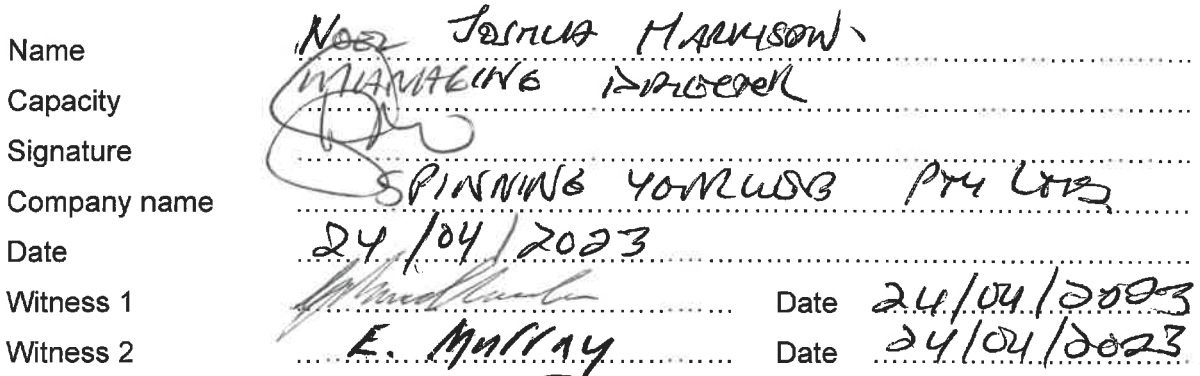 Name NOEL JOSHUA HARRISON
Capacity MANAGING DIRECTOR
Signature
Company name SPINNING YOUR WEB PTY LTD
Date 24/04/2023
Witness 1 Date 24/04/2023
Witness 2 E. Murray Date 24/04/2023